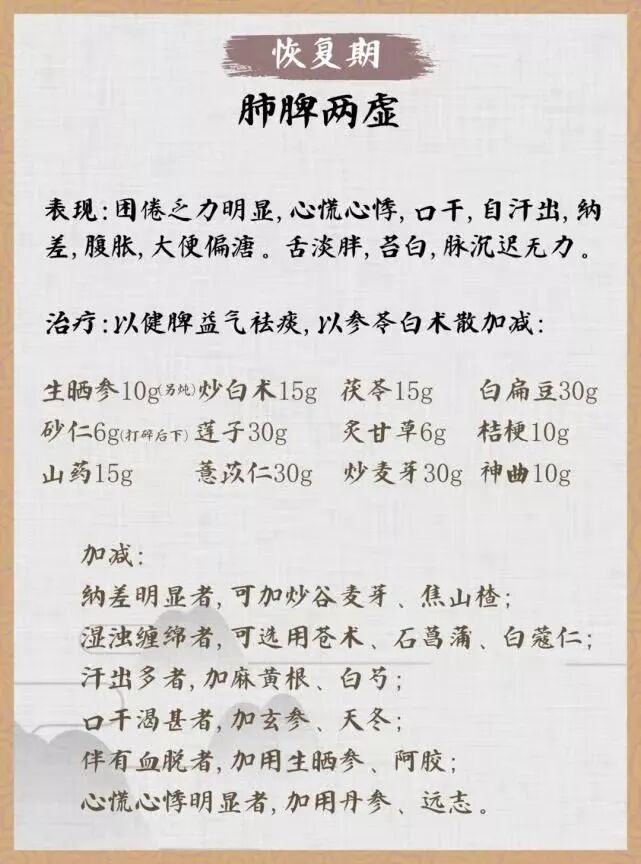 恢复期
肺脾两虚
表现:困倦乏力明显,心慌心悸,口干,自汗出,纳
差,腹胀,大便偏溏。舌淡胖,苔白,脉沉迟无力。
治疗:以健脾益气祛痰,以参苓白术散加减:
生晒参10g(另炖) 炒白术15g 茯苓15g 白扁豆30g
砂仁6g(打碎后下) 莲子30g 炙甘草6g 桔梗10g
山药15g 薏苡仁30g 炒麦芽30g 神曲10g
加减:
纳差明显者,可加炒谷麦芽、焦山楂;
湿浊缠绵者,可选用苍术、石菖蒲、白蔻仁;
汗出多者,加麻黄根、白芍;
口干渴甚者,加玄参、天冬;
伴有血脱者,加用生晒参、阿胶;
心慌心悸明显者,加用丹参、远志。